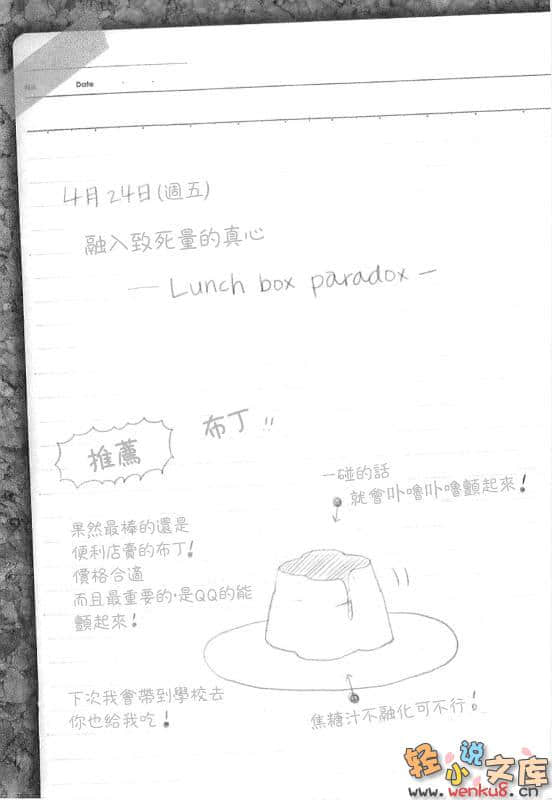 No.
Date
4月24日(週五)
融入致死量的真心
— Lunch box paradox —
推薦
布丁!!
一碰的話
就會卟嚕卟嚕顫起來!
果然最棒的還是
便利店賣的布丁!
價格合適
而且最重要的·是QQ的能
顫起來!
下次我會帶到學校去
你也給我吃!
焦糖汁不融化可不行!
轻小说文库
www.wenku8.cn